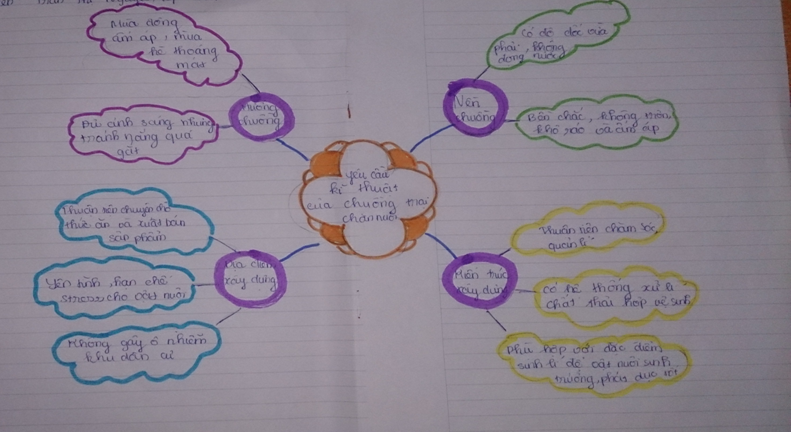 Mùa đông
ấm áp, mùa
hè thoáng
mát
Đủ ánh sáng nhưng
tránh nắng quá
gắt
Hướng
chuồng
Có độ dốc vừa
phải, không
đọng nước
Nền
chuồng
Bền chắc, không trơn
khô ráo và ấm áp
yêu cầu
kĩ thuật
của chuồng trại
chăn nuôi
Thuận tiện chuyên chở
thức ăn và xuất bán
sản phẩm
Yên tĩnh, hạn chế
stress cho vật nuôi
Không gây ô nhiễm
khu dân cư
Địa điểm
xây dựng
Kiến trúc
xây dựng
Thuận tiện chăm sóc,
quản lí
Có hệ thống xử lí
chất thải hợp vệ sinh
Phù hợp với đặc điểm
sinh lí để vật nuôi sinh
trưởng, phát dục tốt